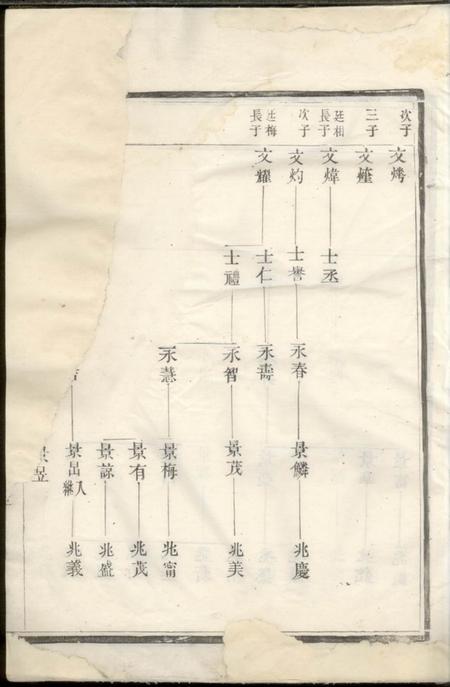 次子
文烤
三子
文煃
廷相
長子
文煒
士丞
次子
文灼
士譽
永春
景鱗
兆慶
廷梅
長子
文耀
士仁
永壽
士禮
永智
景茂
兆美
永慧
景梅
兆甯
景有
兆茂
景諒
兆盛
景出
入繼
兆義
景昱